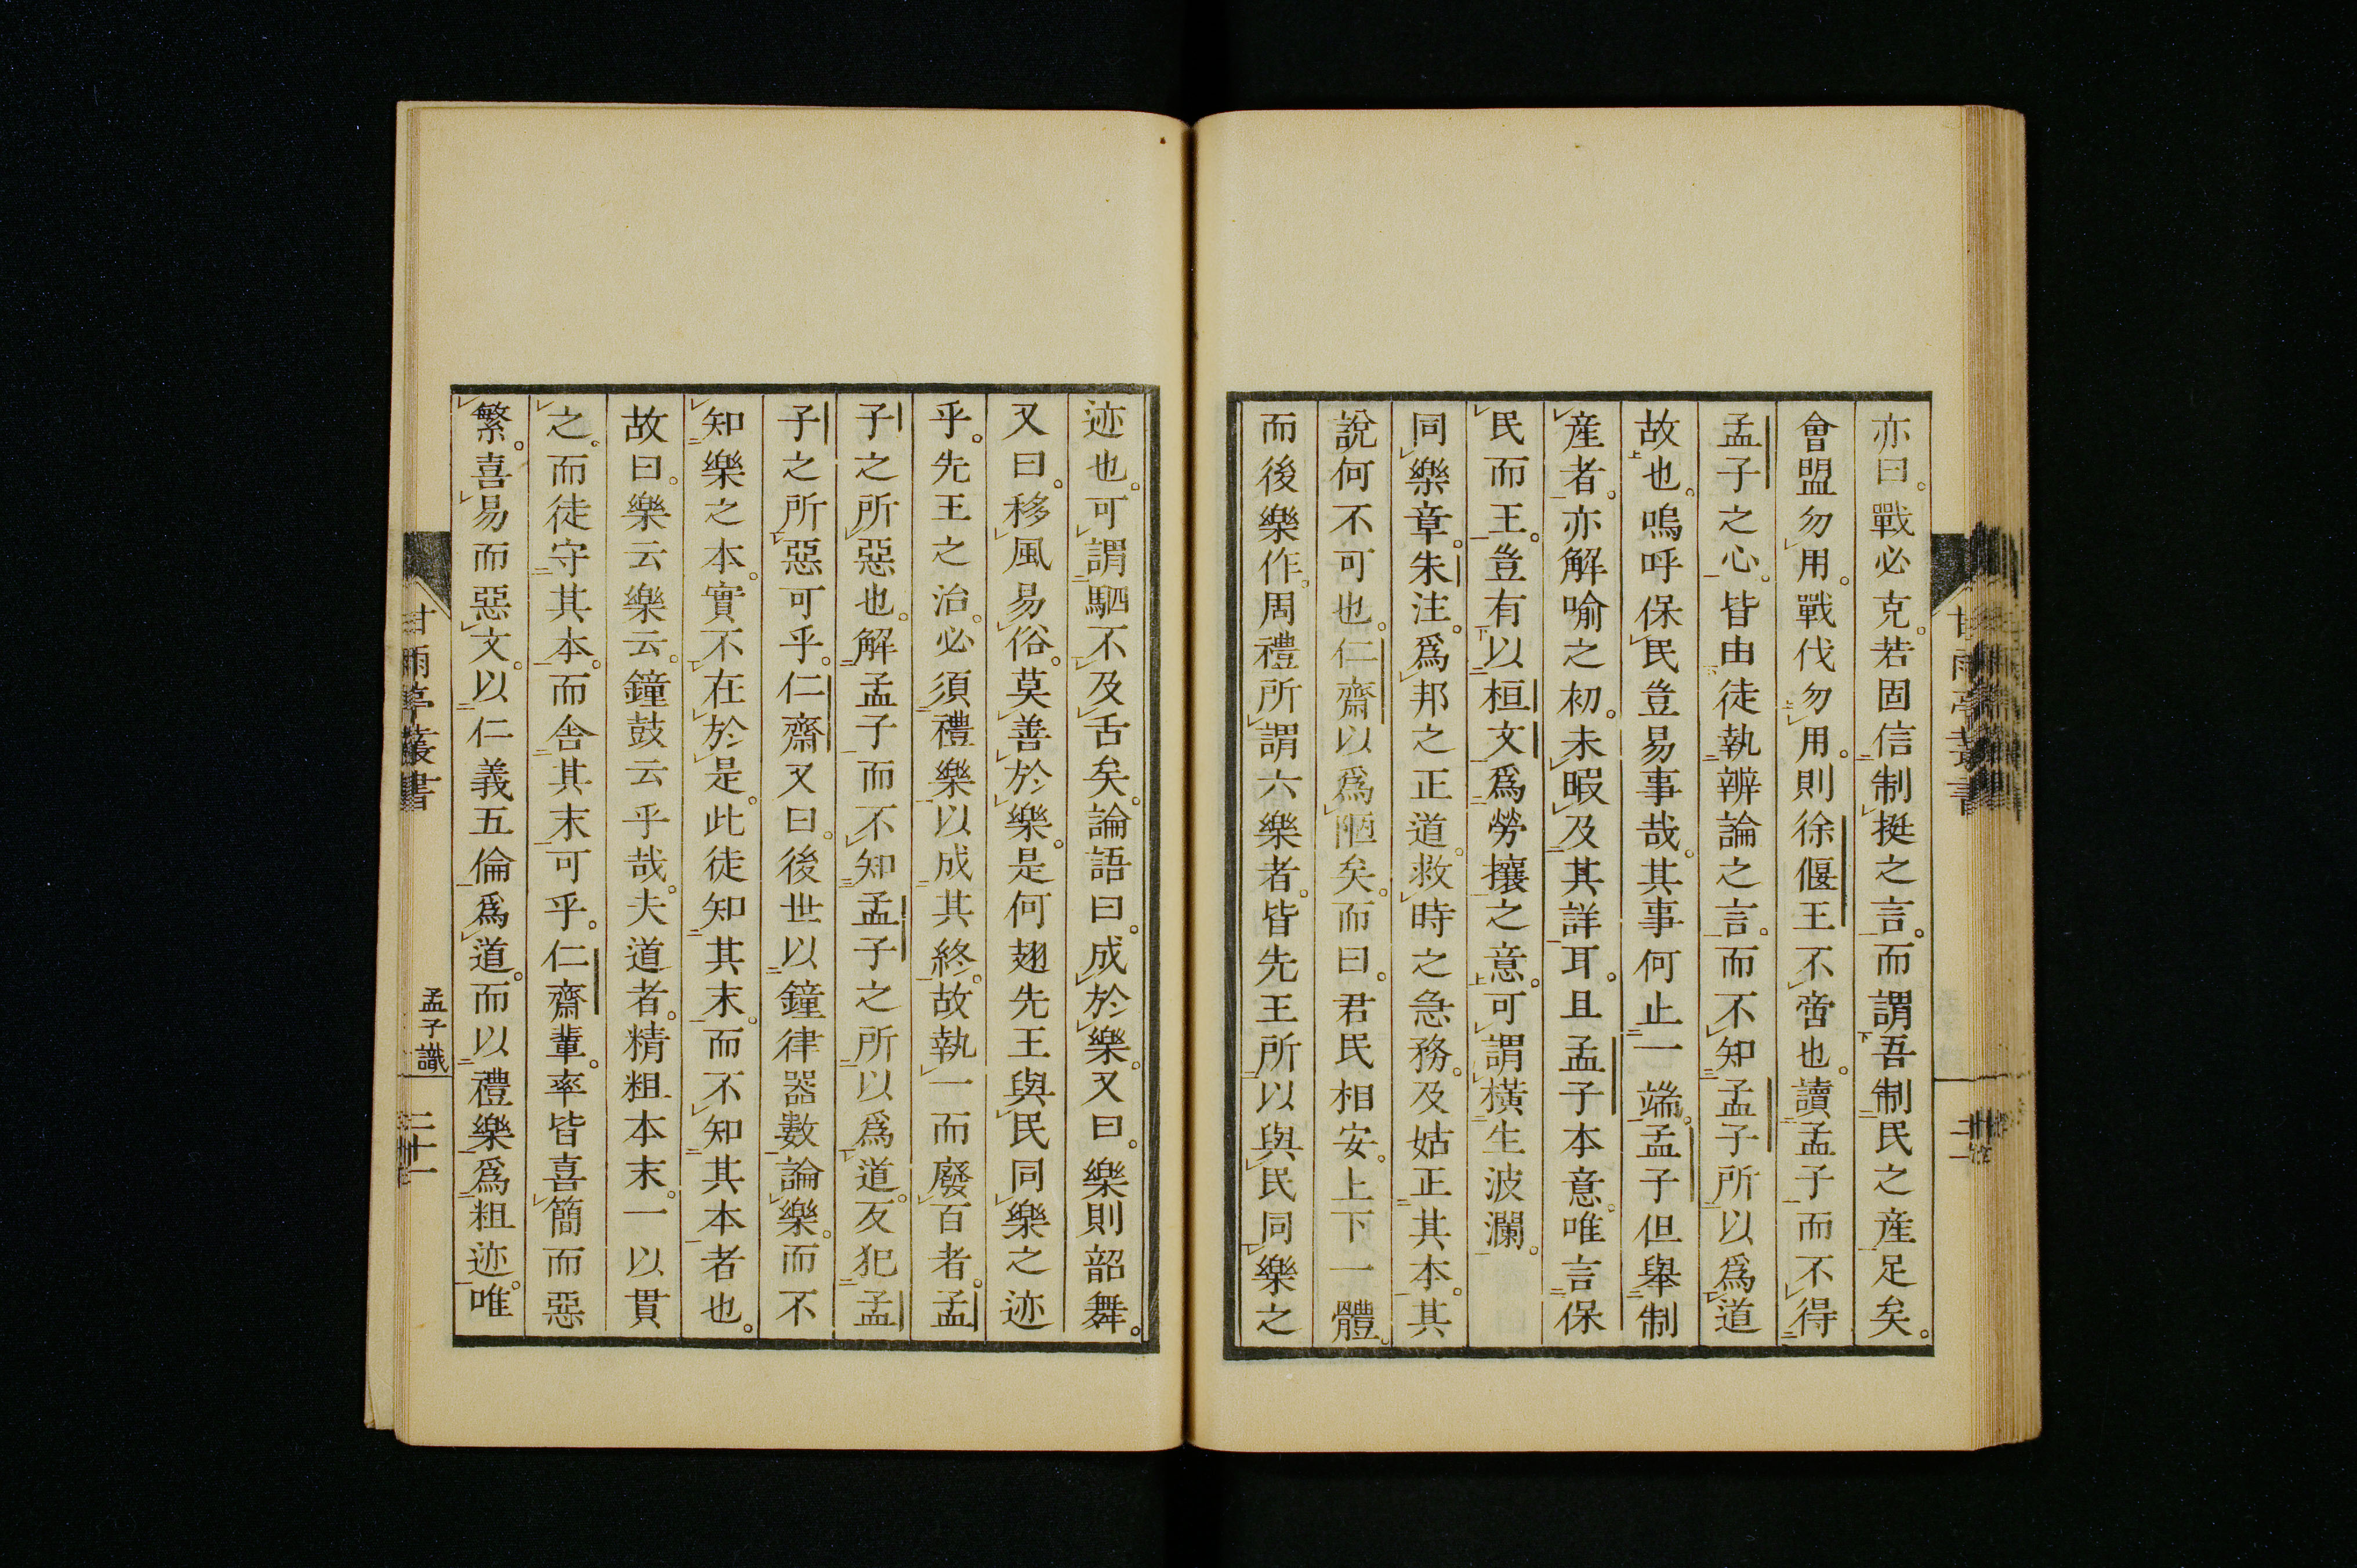 亦曰。戰必克。若固信制挺之言。而謂吾制民之産足矣。
會盟勿用。戰伐勿用。則徐偃王不啻也。讀孟子而不得
孟子之心。皆由徒執辨論之言。而不知孟子所以爲道
故也。嗚呼保民豈易事哉。其事何止一端。孟子但舉制
産者。亦解喻之初。未暇及其詳耳。且孟子本意。唯言保
民而王。豈有以桓文爲勞攘之意。可謂橫生波瀾。
同樂章。朱注。爲邦之正道。救時之急務。及姑正其本。其
說何不可也。仁齋以爲陋矣。而曰。君民相安。上下一體。
而後樂作。周禮所謂六樂者。皆先王所以與民同樂之
迹也。可謂駟不及舌矣。論語曰。成於樂。又曰。樂則韶舞。
又曰。移風易俗。莫善於樂。是何翅先王與民同樂之迹
乎。先王之治。必須禮樂以成其終。故執一而廢百者。孟
子之所惡也。解孟子而不知孟子之所以爲道。反犯孟
子之所惡可乎。仁齋又曰。後世以鐘律器數論樂。而不
知樂之本。實不在於是。此徒知其末。而不知其本者也。
故曰。樂云樂云。鐘鼓云乎哉。夫道者。精粗本末。一以貫
之。而徒守其本。而舍其末可乎。仁齋輩。率皆喜簡而惡
繁。喜易而惡文。以仁義五倫爲道。而以禮樂爲粗迹。唯
甘雨亭叢書
孟子識
二十一